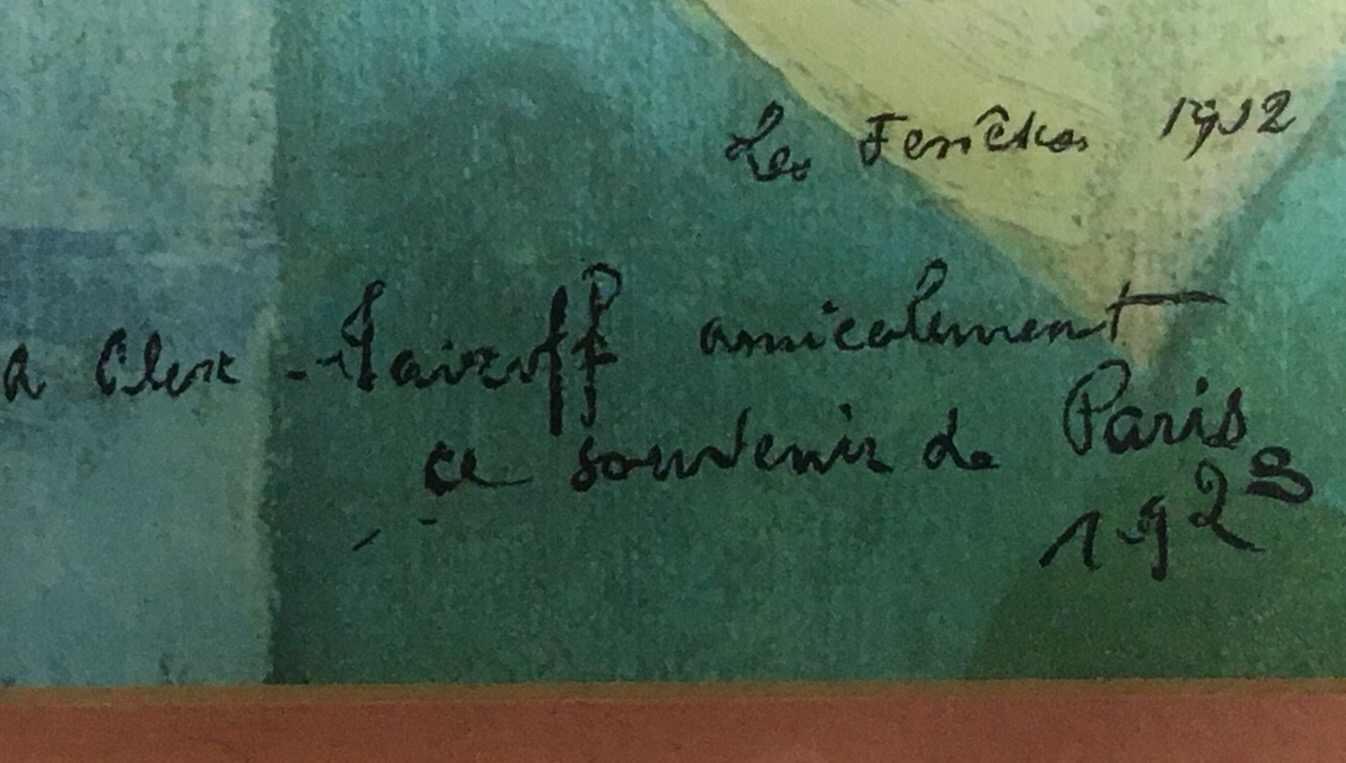 Les Fenêtres 1912
a Alex-Tairoff amicalement
ce souvenir de Paris
1923